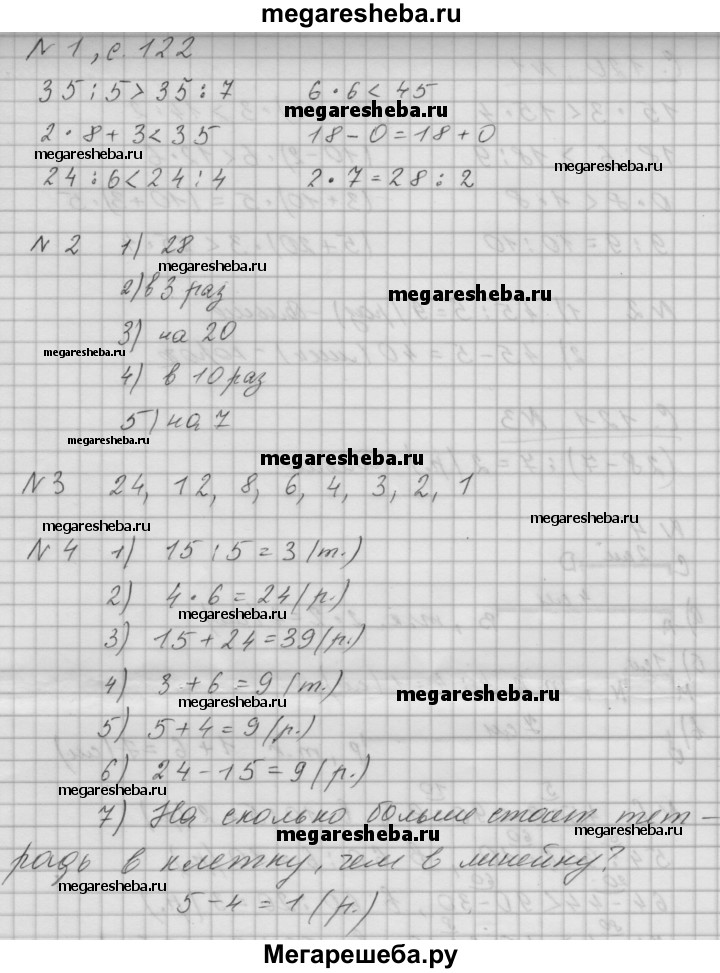 megaresheba.ru
N 1, с. 122
35 : 5 > 35 : 7 6 · 6 < 45
megaresheba.ru
2 · 8 + 3 < 35 18 - 0 = 18 + 0
megaresheba.ru megaresheba.ru
24 : 6 < 24 : 4 2 · 7 = 28 : 2
N 2 1) 28
megaresheba.ru
2) в 3 раз
megaresheba.ru
3) на 20
megaresheba.ru
4) в 10 раз
5) на 7
megaresheba.ru
megaresheba.ru
N 3 24, 12, 8, 6, 4, 3, 2, 1
megaresheba.ru
megaresheba.ru
N 4 1) 15 : 5 = 3 (т.)
2) 4 · 6 = 24 (р.)
megaresheba.ru
3) 15 + 24 = 39 (р.)
4) 3 + 6 = 9 (т.)
megaresheba.ru
megaresheba.ru
5) 5 + 4 = 9 (р.)
6) 24 - 15 = 9 (р.)
megaresheba.ru
7) На сколько больше стоит тет-
megaresheba.ru megaresheba.ru
радь в клетку, чем в линейку?
megaresheba.ru
5 - 4 = 1 (р.)
Мегарешеба.ру